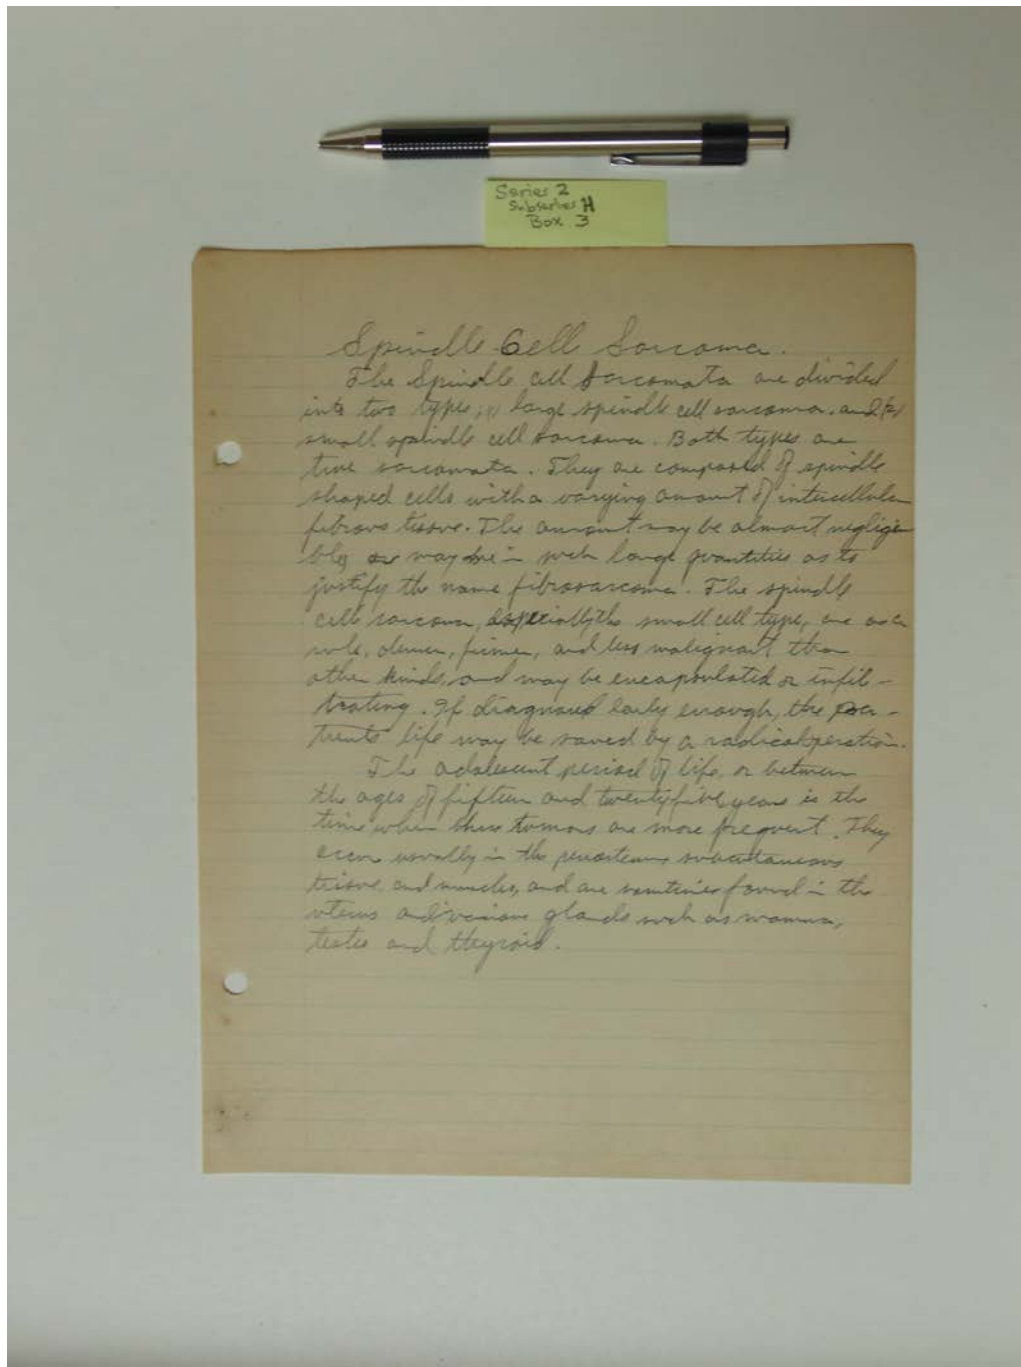 Series 2
Subseries H
Box 3
Spindle Cell Sarcoma.
The Spindle cell Sarcomata are divided
into two types, (1) large spindle cell sarcoma. and (2)
small spindle cell sarcoma. Both types are
true sarcomata. They are composed of spindle
shaped cells with a varying amount of intercellular
fibrous tissue. The amount may be almost negligi
ble, or may be in such large quantities as to
justify the name fibrosarcoma. The spindle
cell sarcoma, especially the small cell type, are as a
rule, denser, firmer, and less malignant than
other kinds, and may be encapsulated or infil-
trating. If diagnosed early enough, the pa-
tients life may be saved by a radical operation.
The adolescent period of life, or between
the ages of fifteen and twentyfive years is the
time when these tumors are more frequent. They
occur usually in the
tissue, and muscles, and are sometimes found in the
uterus and various glands such as mamma,
testes and thyroid.